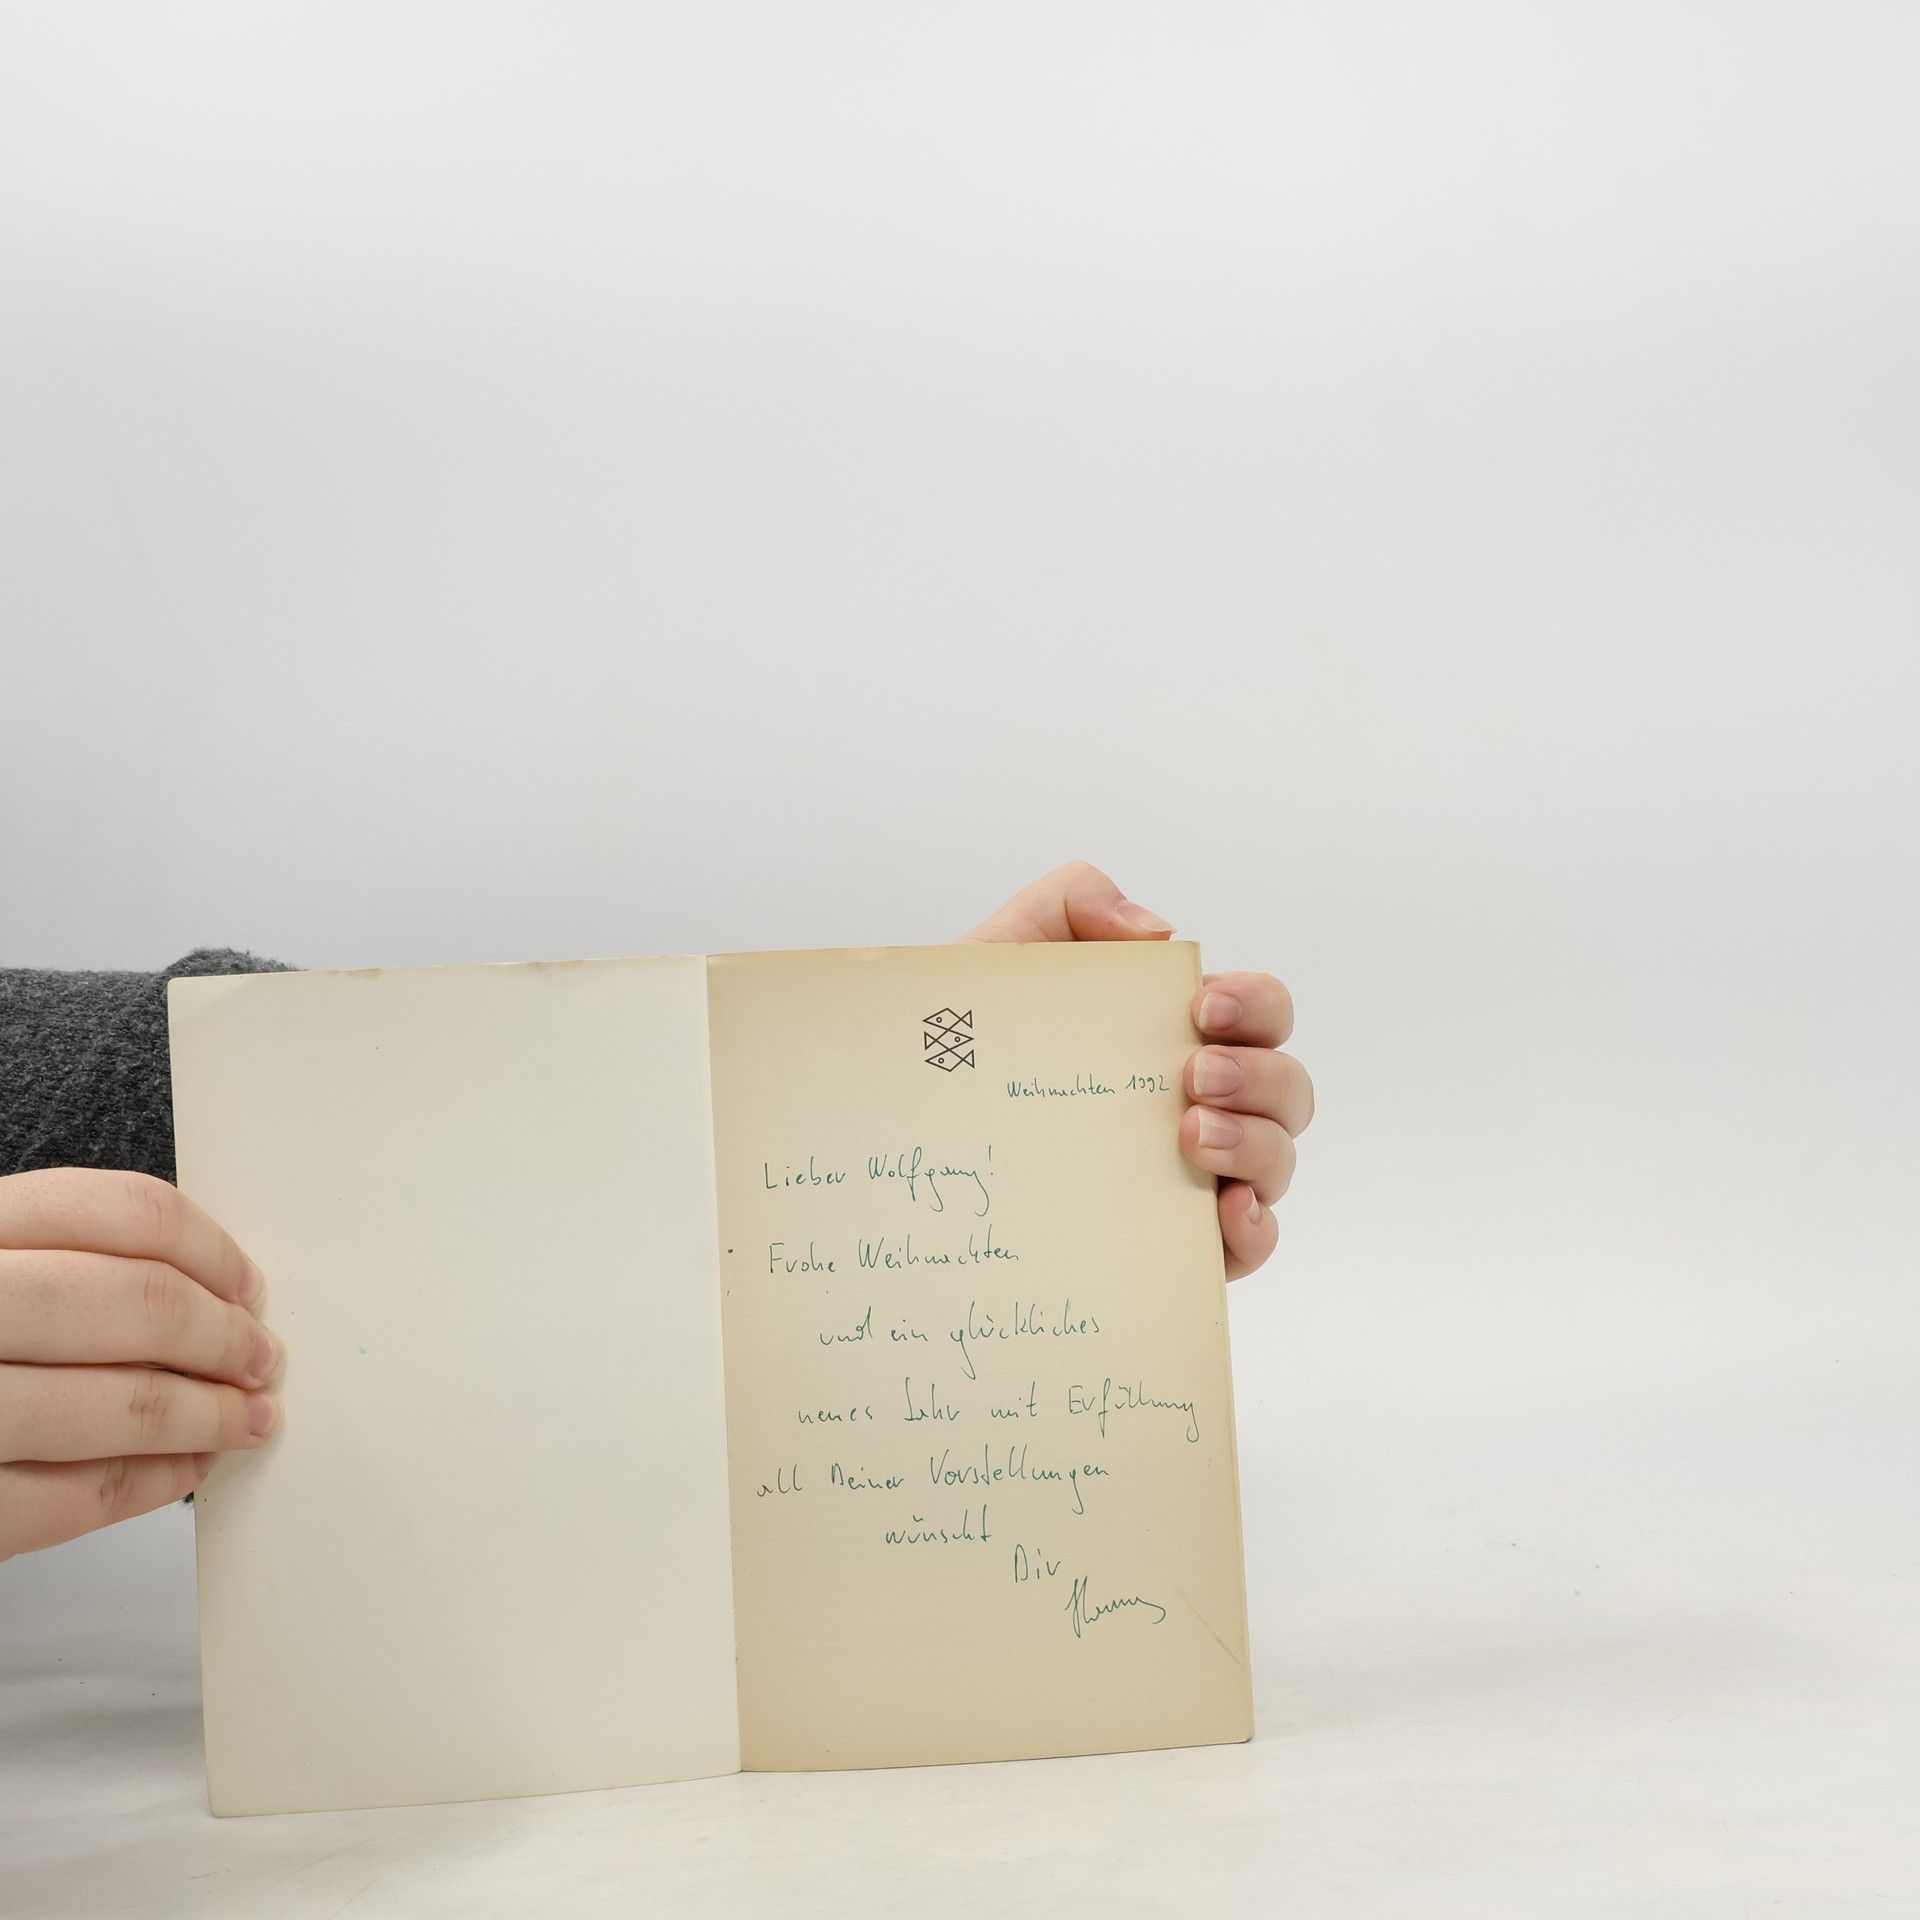 Weihnachten 1992
Lieber Wolfgang!
Frohe Weihnachten
und ein glückliches
neues Jahr mit Erfüllung
all Deiner Vorstellungen
wünscht
Dir